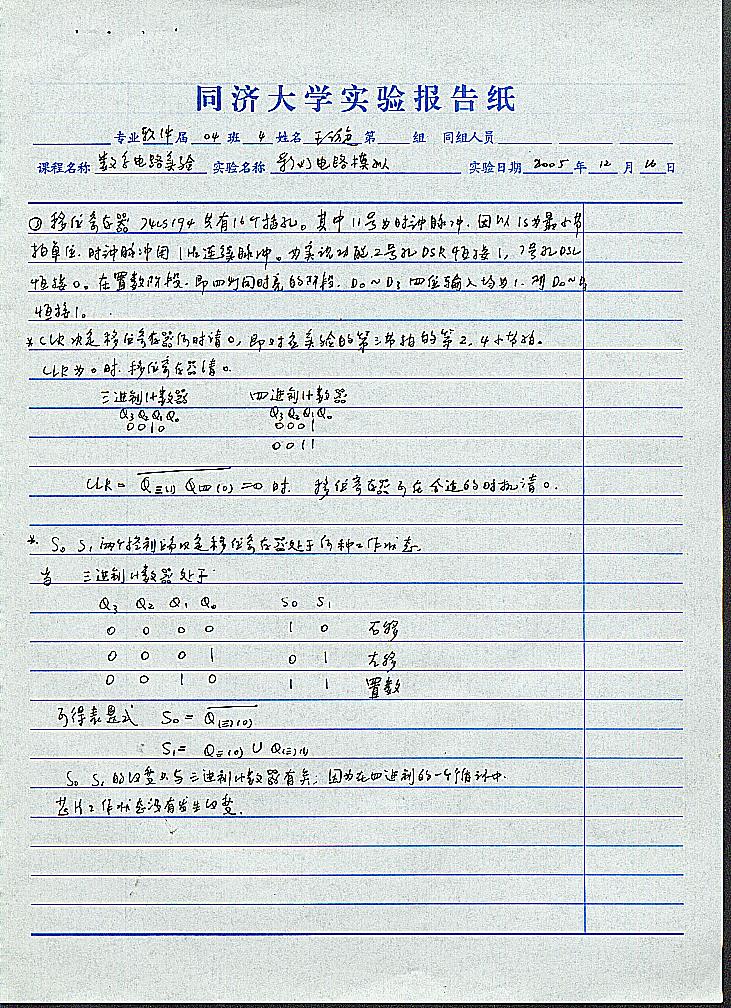 同济大学实验报告纸
专业 软件 届 04 班 4 姓名 王 第 组 同组人员
课程名称 数字电路实验 实验名称 彩灯电路模拟 实验日期 2005 年 12 月 16 日
② 移位寄存器 74LS194 共有16个插孔。其中11号为时钟脉冲. 因以1S为最小节
拍单位. 时钟脉冲用1Hz连续脉冲。为实现功能,2号孔DSR恒接1, 7号孔DSL
恒接0。在置数阶段. 即四灯同时亮的阶段. D0~D3 四位输入均为1. 则D0~D3
恒接1。
* CLR决定移位寄存器何时清0, 即对应实验的第三节拍的第2, 4小节拍.
CLR为0时. 移位寄存器清0.
三进制计数器 四进制计数器
Q3Q2Q1Q0 Q3Q2Q1Q0
0010 0001
0011
CLR = Q三(1) Q四(0) =0 时. 移位寄存器可在合适的时机清0.
* S0 S1 两个控制端决定移位寄存器处于何种工作状态.
当 三进制计数器处于
Q3 Q2 Q1 Q0 S0 S1
0 0 0 0 1 0 右移
0 0 0 1 0 1 左移
0 0 1 0 1 1 置数
可得表达式 S0 = Q(三)(0)
S1 = Q三(0) ∪ Q(三)(1)
S0 S1 的改变只与三进制计数器有关; 因为在四进制的一个循环中.
芯片工作状态没有发生改变.